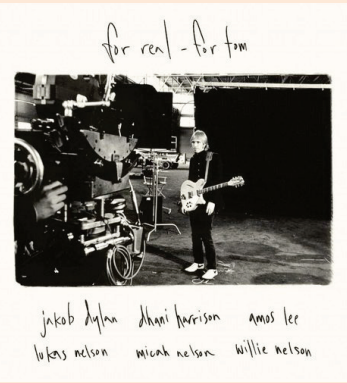 for real - for tom
jakob dylan dhani harrison amos lee
lukas nelson micah nelson willie nelson